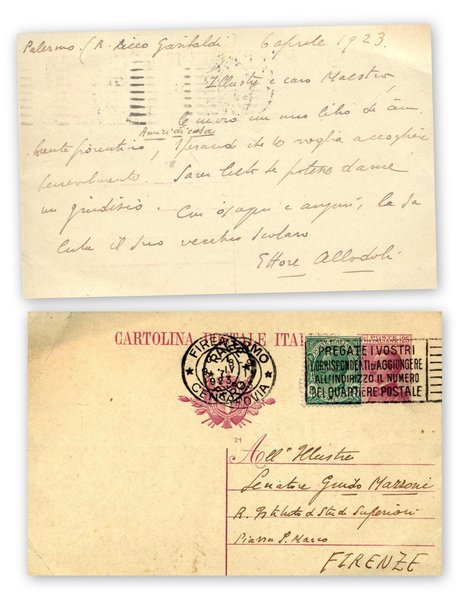 Palermo. (R. Liceo Garibaldi) 6 aprile 1923.
Illustre e caro Maestro,
Le invio un mio libro di am-
Amici di casa
biente fiorentino, sperando che lo voglia accogliere
benevolmente. Sarei lieto se potesse darne
un giudizio. Con ossequi e auguri, La sa-
luta il suo vecchio scolaro
Ettore Allodoli
CARTOLINA POSTALE ITAL
FIRENZE
CENTRO
FERROVIA
1923
PREGATE I VOSTRI
CORRISPONDENTI DI AGGIUNGERE
ALL'INDIRIZZO IL NUMERO
DEL QUARTIERE POSTALE
21
All' Illustre
Senatore Guido Mazzoni
R. Istituto di Studi Superiori
Piazza S. Marco
FIRENZE